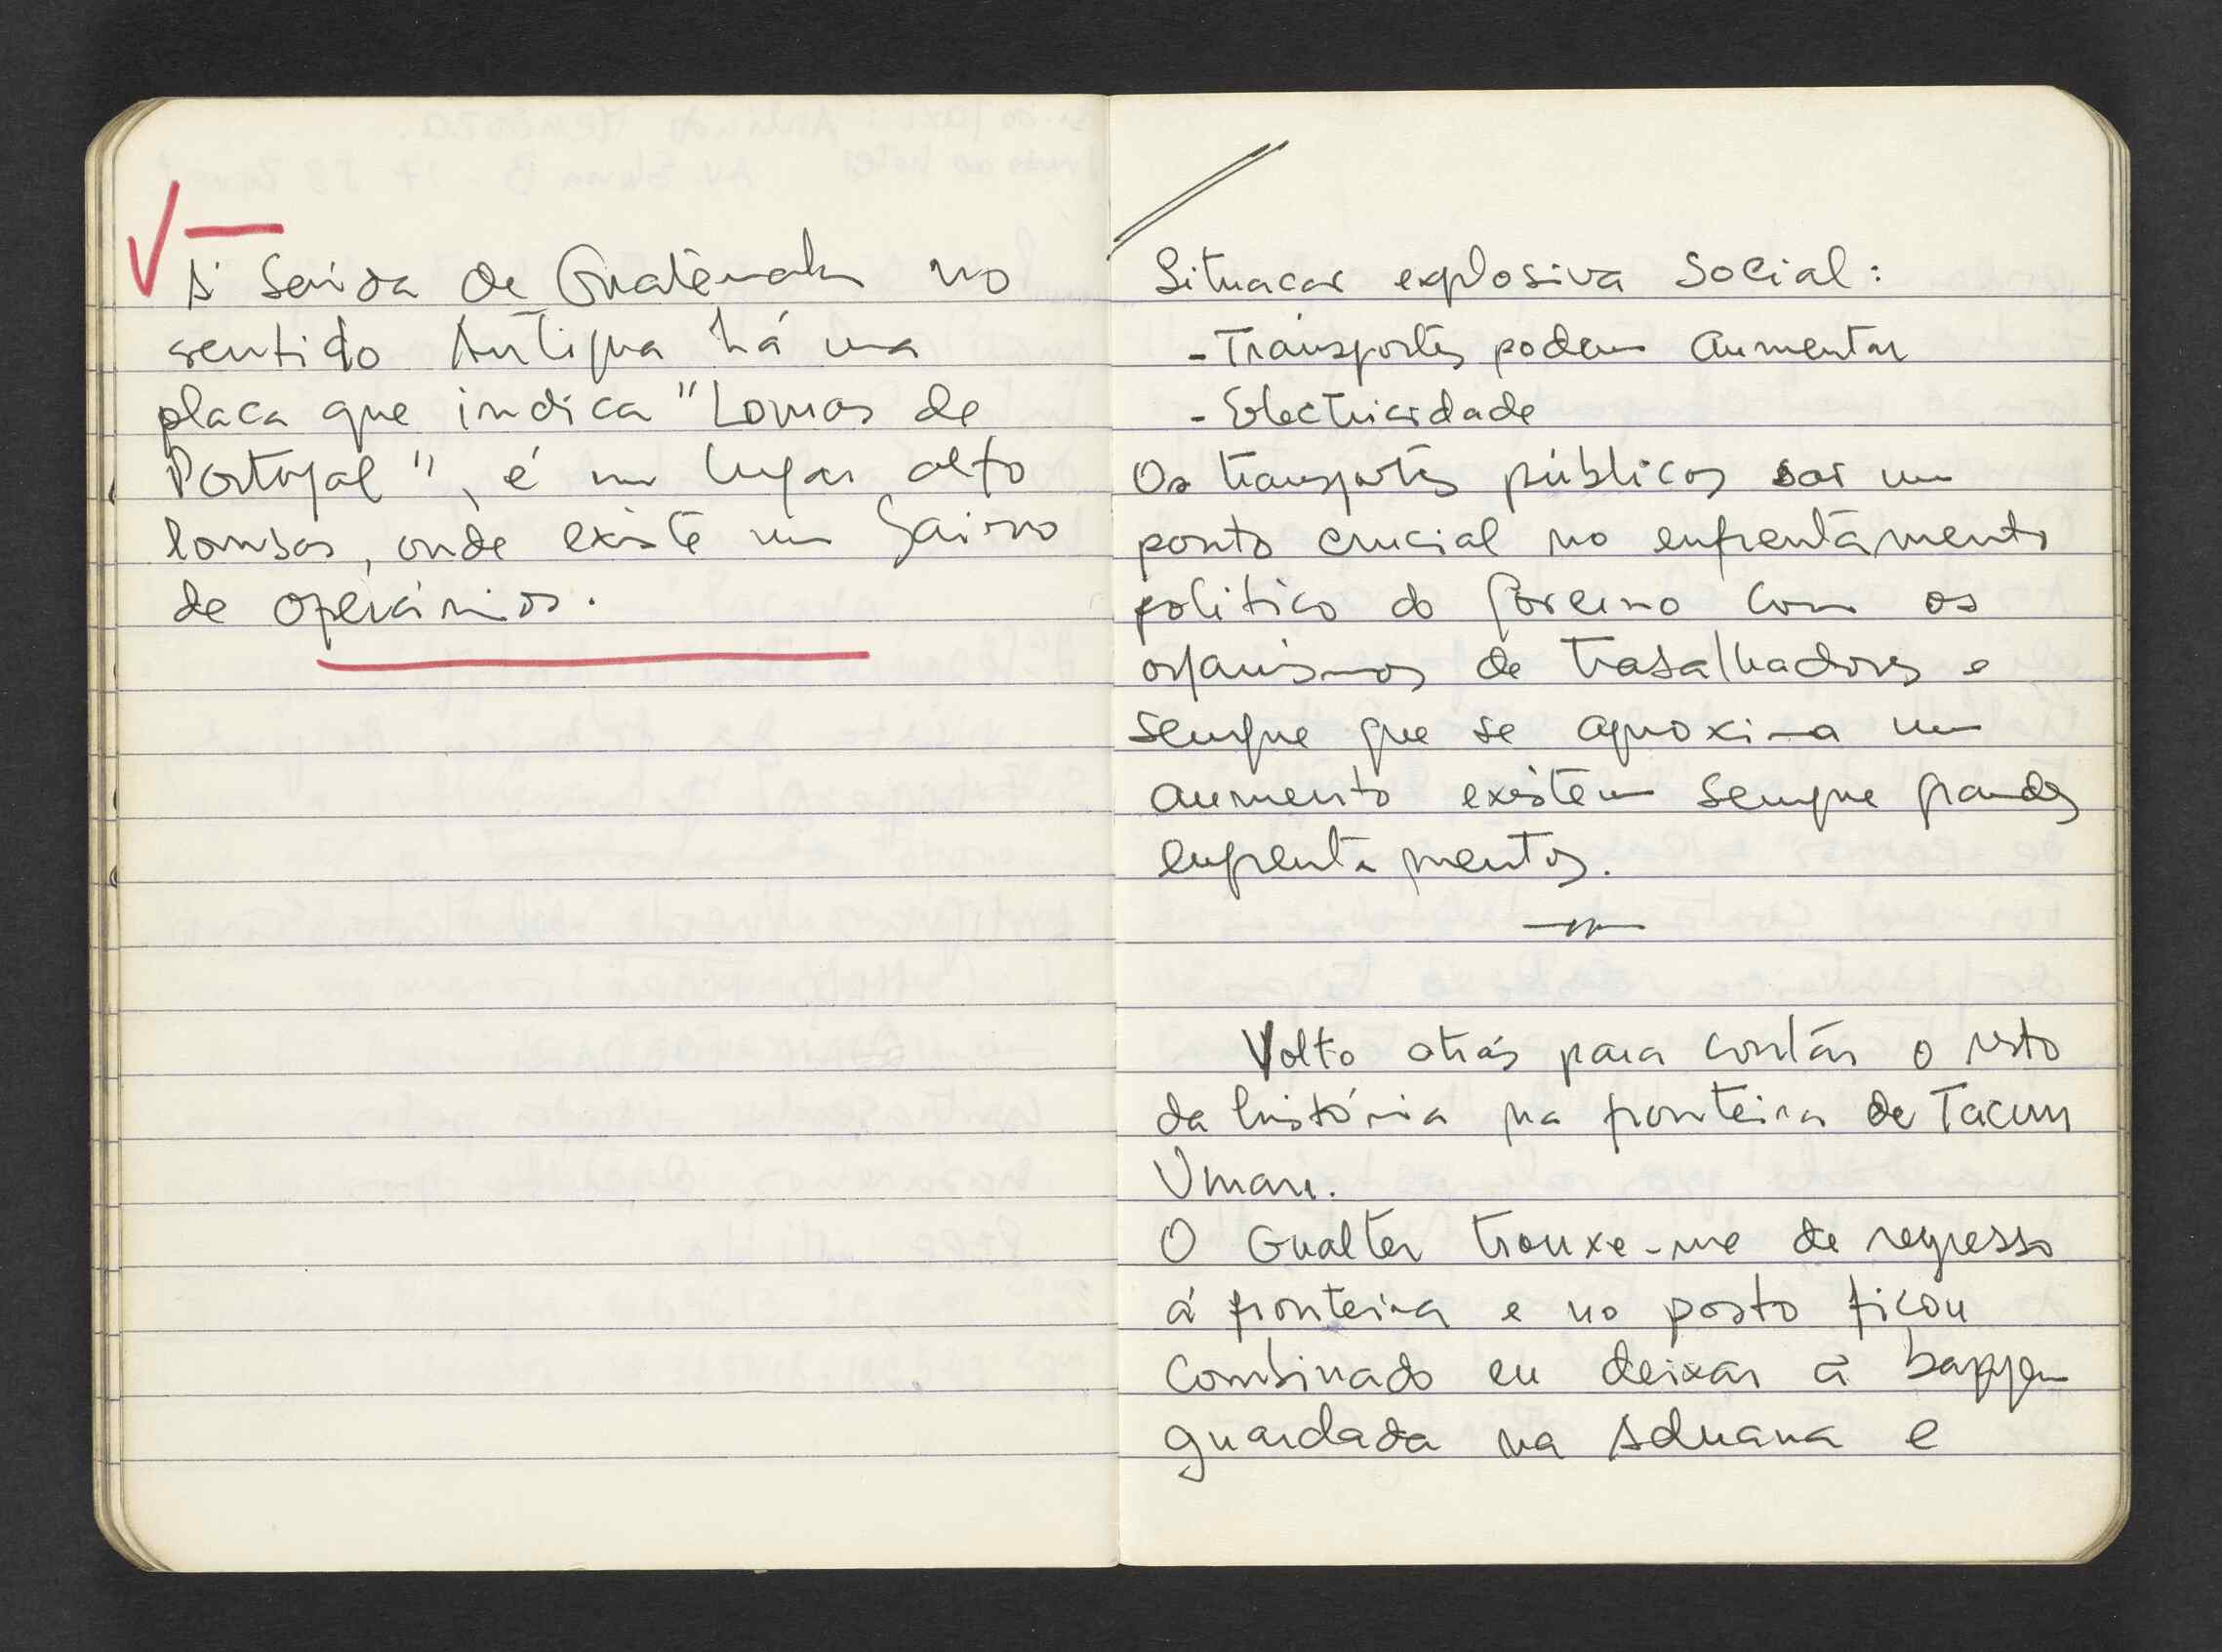 À saida de Guatemala no
sentido Antigua há uma
placa que indica "Lomas de
Portugal", é um lugar alto
lombas, onde existe um bairro
de operários.
Situacao explosiva social:
- Transportes podem aumentar
- Electricidade
Os transportes públicos sao um
ponto crucial no enfrentamento
politico do Governo com os
organismos de trabalhadores e
sempre que se aproxima um
aumento existem sempre grandes
enfrentamentos.
Volto atrás para contar o resto
da história na fronteira de Tacun
Uman.
O Gualter trouxe-me de regresso
á fronteira e no posto ficou
combinado eu deixar a bagagem
guardada na Aduana e